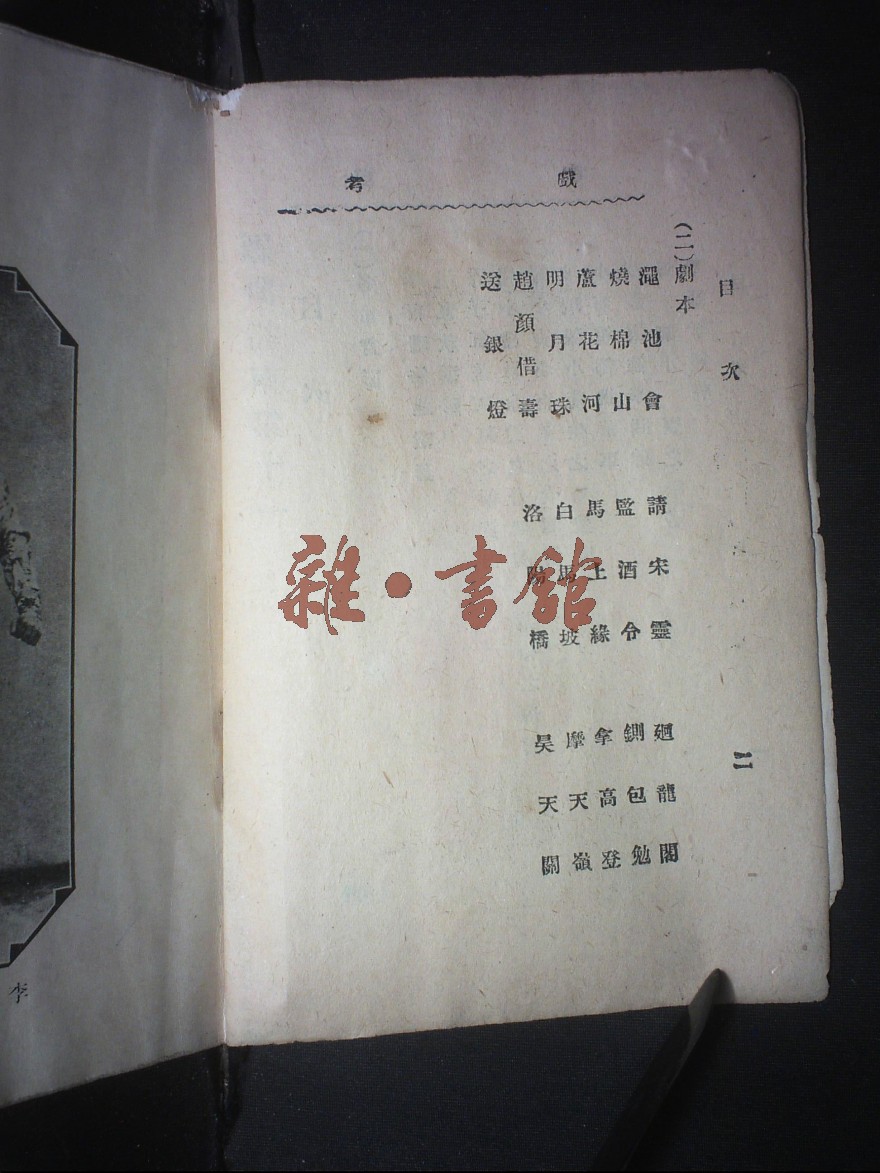 戲考
目次 二
(二)劇本
澠池會 請宋靈 廻龍閣
燒棉山 監酒令 鍘包勉
蘆花河 馬上緣 拿高登
明月珠 白馬坡 摩天嶺
趙顏借壽 洛陽橋 昊天關
送銀燈
李
雜·書館